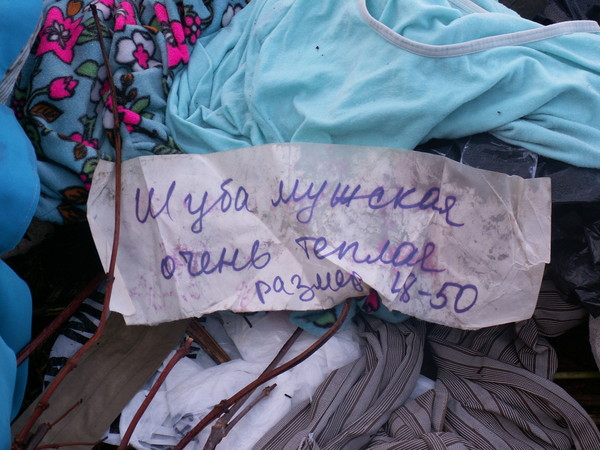 Шуба мужская
очень теплая
размер 48-50